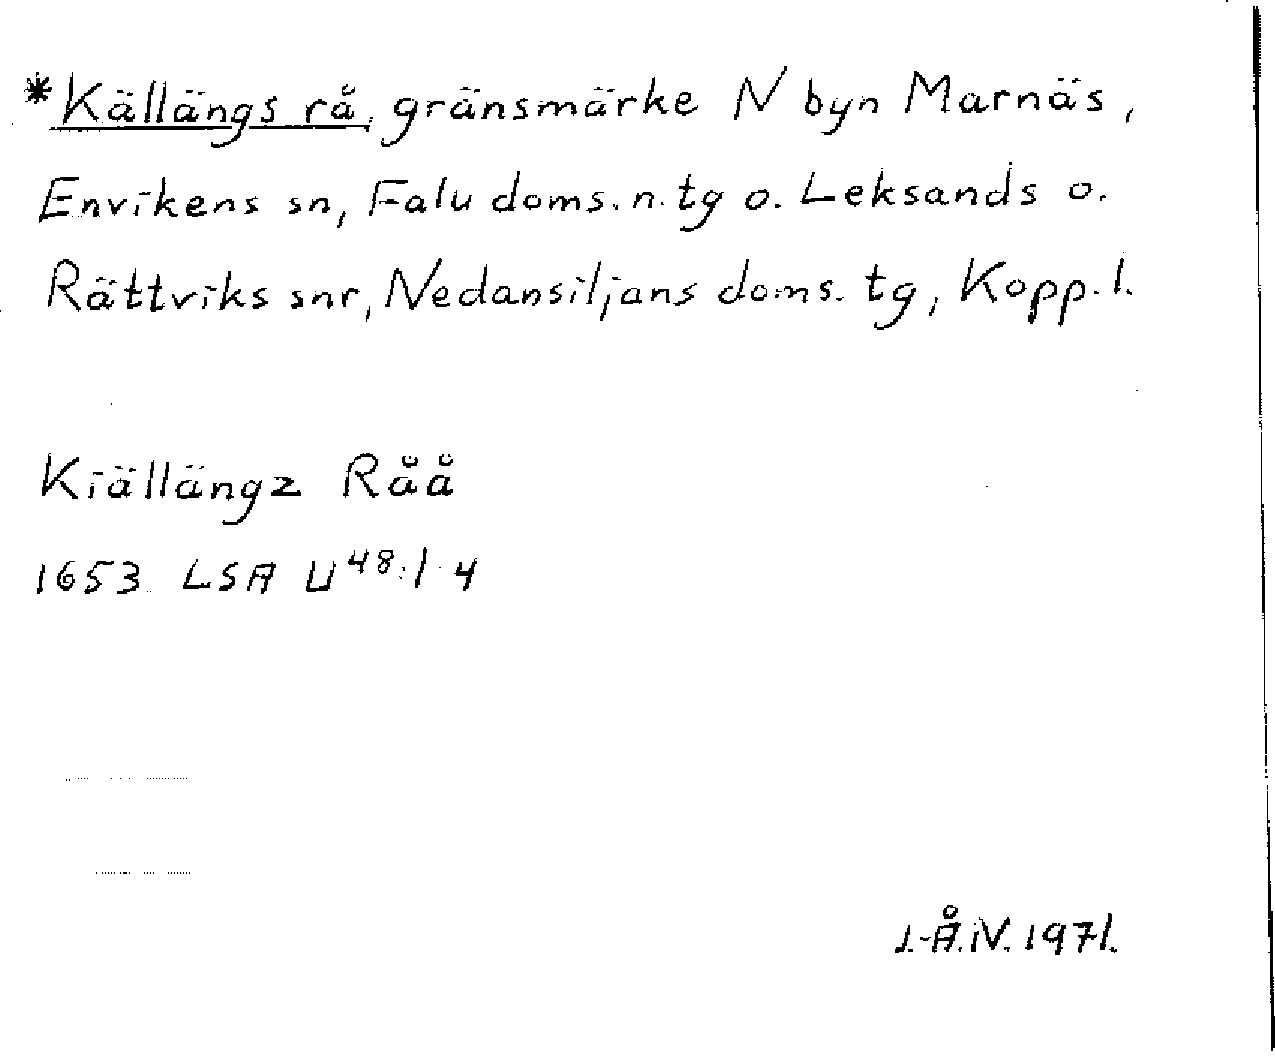 *Källängs rå, gränsmärke N byn Marnäs,
Envikens sn, Falu doms. n. tg o. Leksands o.
Rättviks snr, Nedansiljans doms. tg, Kopp. l.
Kiällängz Råå
1653 LSA U48:1 4
J.-Å.W. 1971.